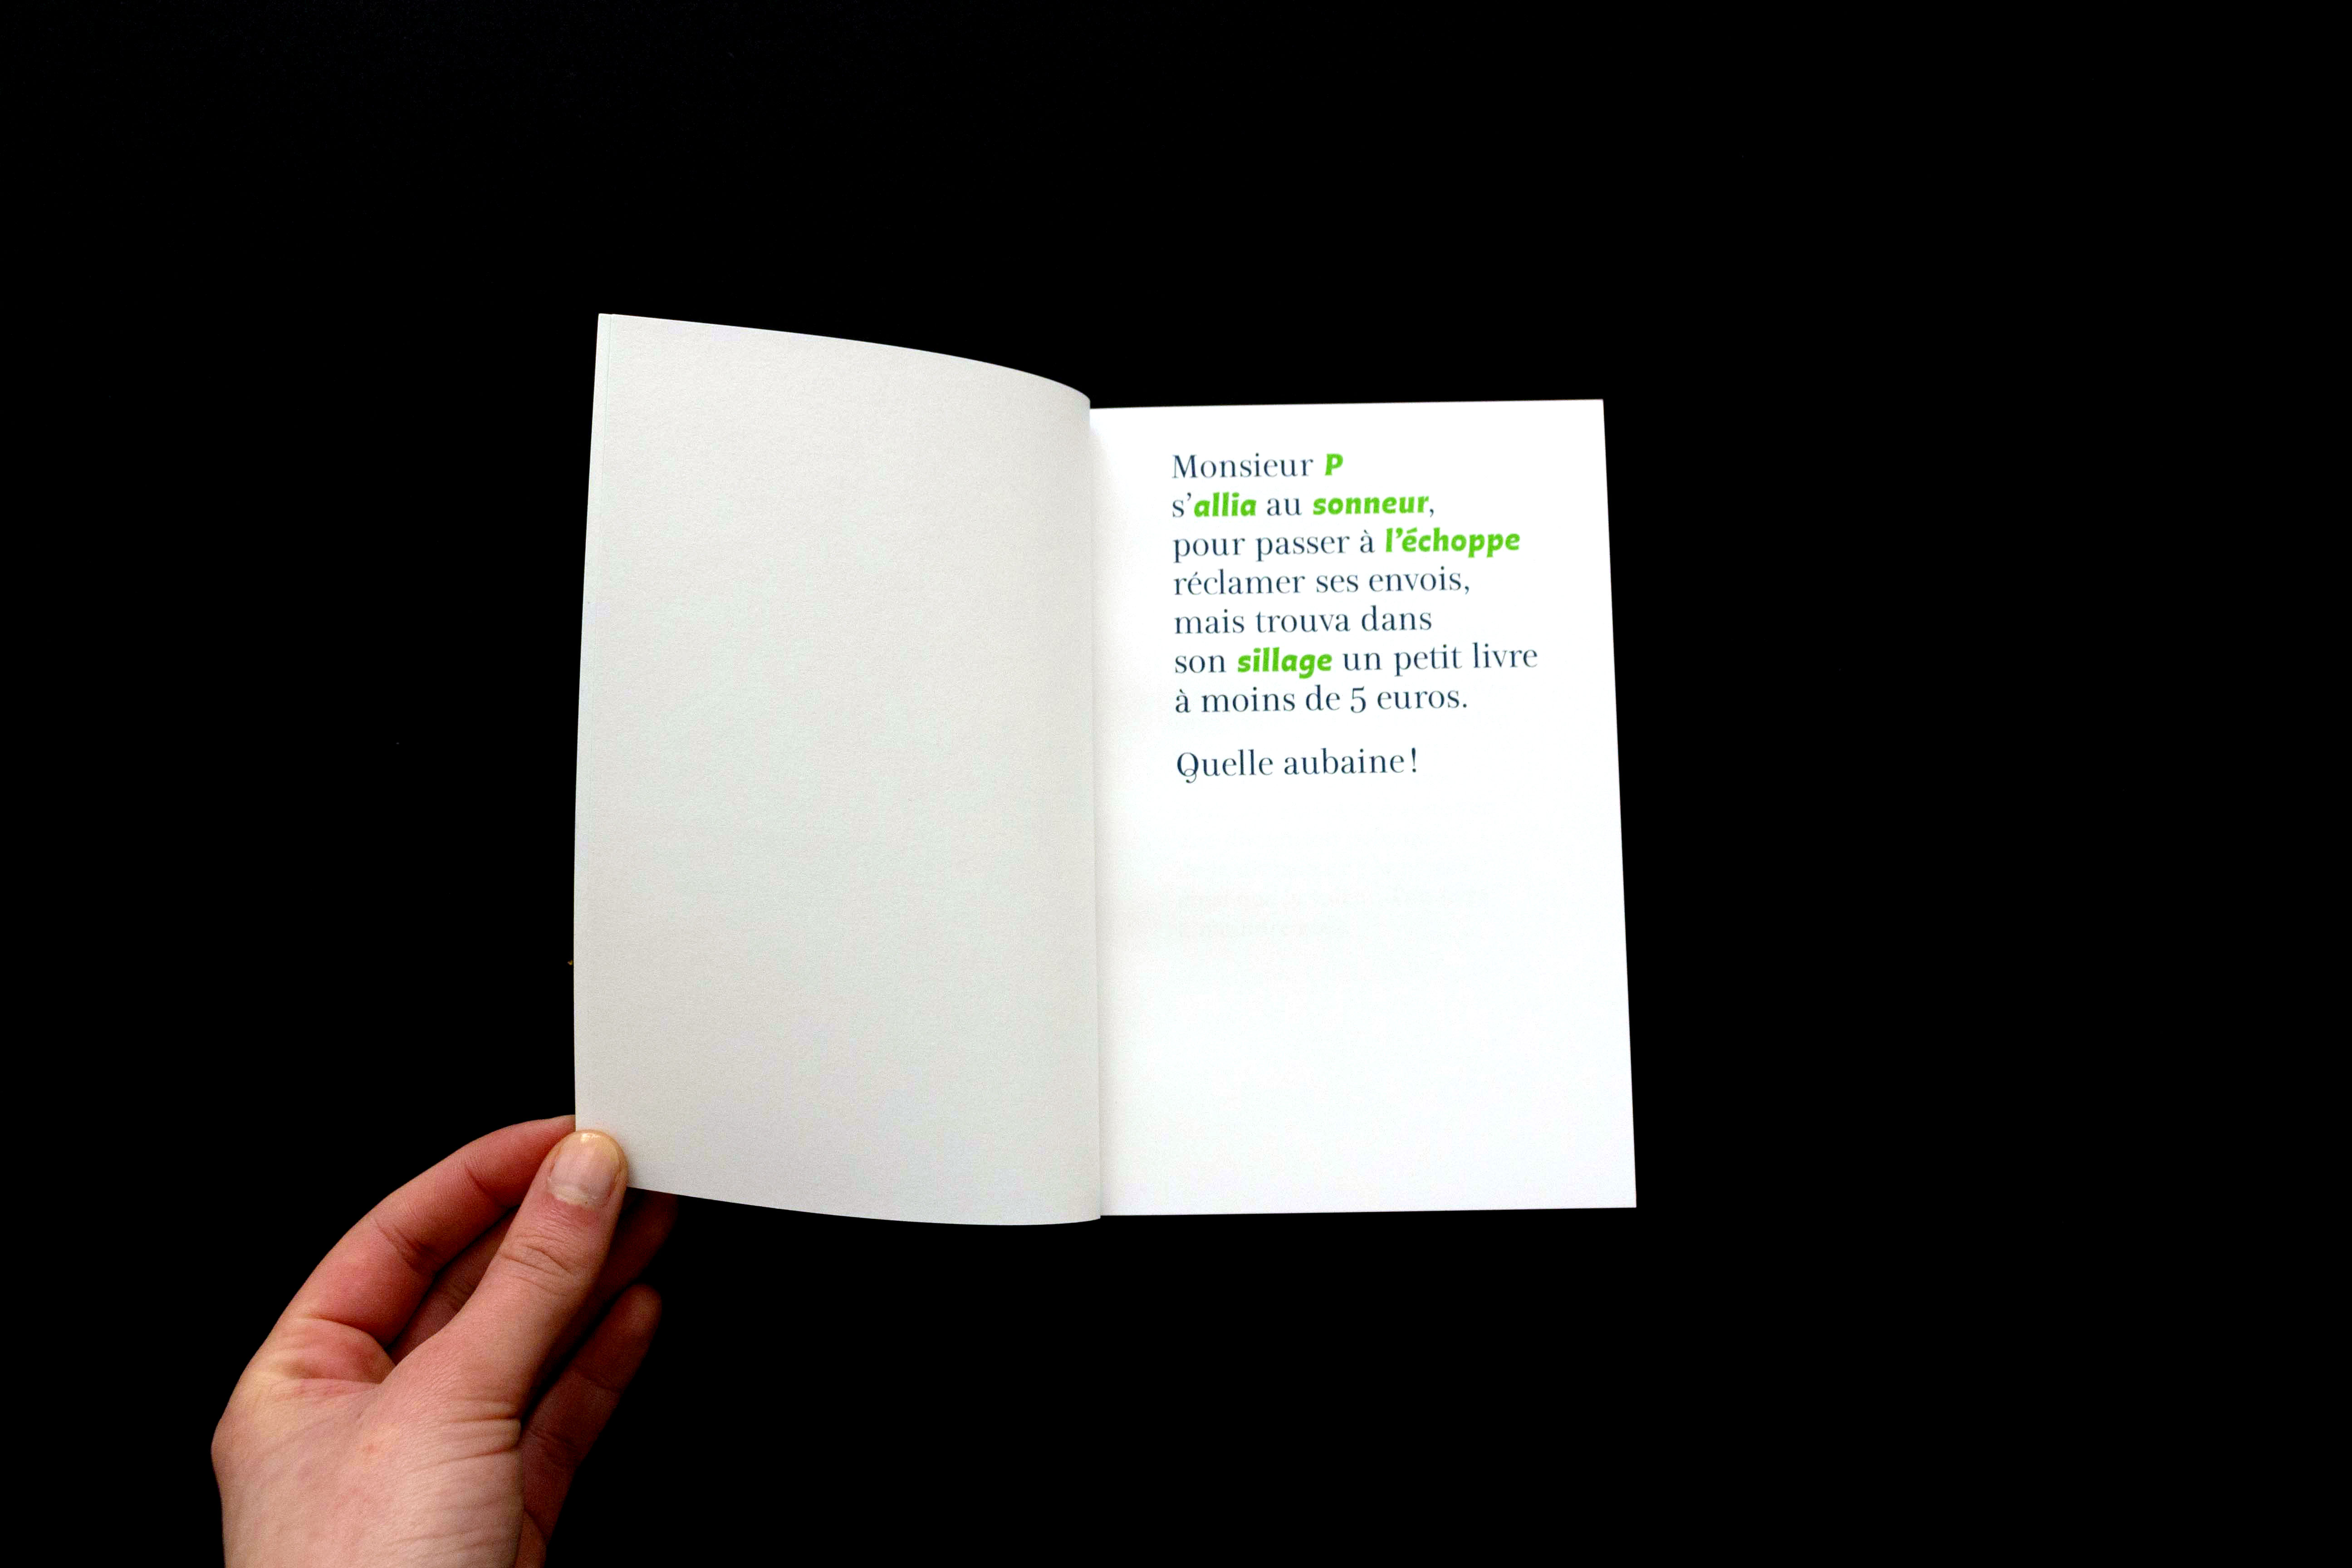 Monsieur P
s’allia au sonneur,
pour passer à l’échoppe
réclamer ses envois,
mais trouva dans
son sillage un petit livre
à moins de 5 euros.
Quelle aubaine !